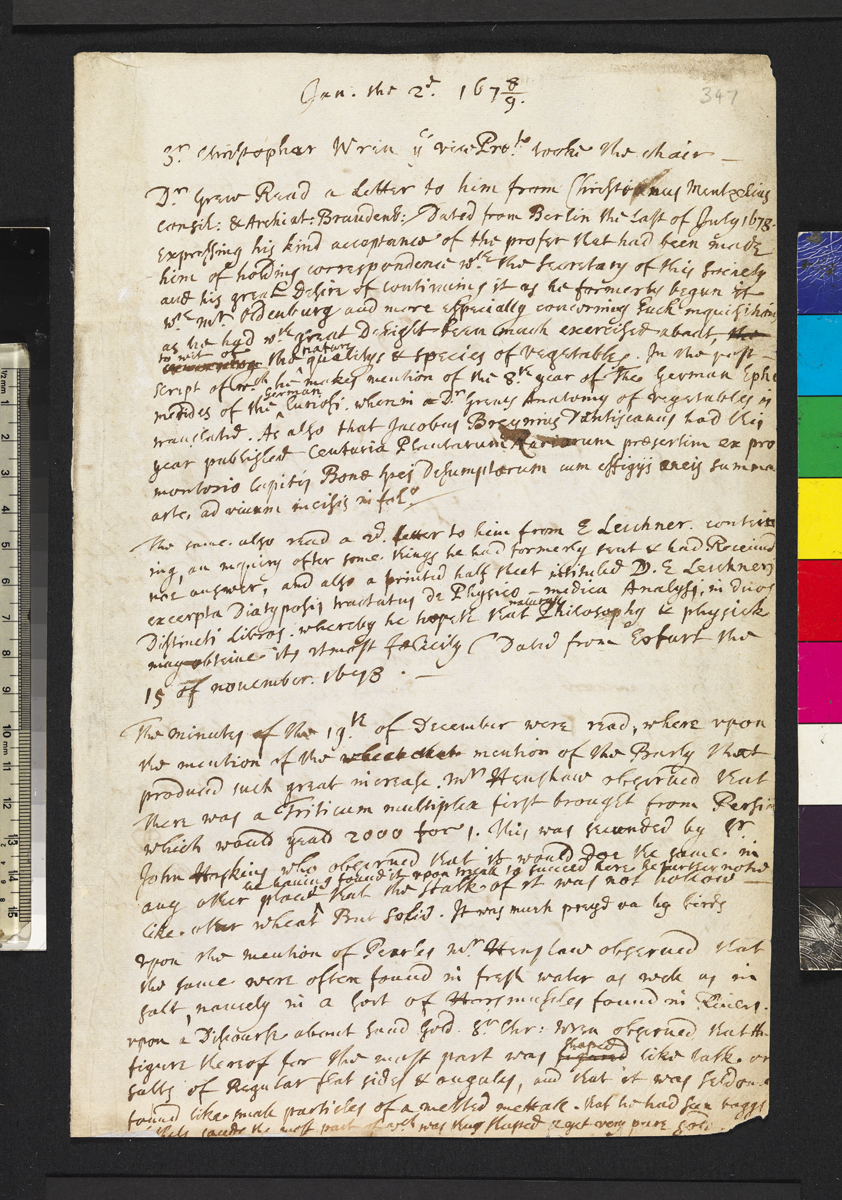 Jan. the 2d. 167 8/9.
347
Sr. Christopher Wren ye vice Prest. tooke the chair —
Dr Grew Read a Letter to him from Christianus Mentzelius
Consil: & Archiat: Brandenb: Dated from Berlin the Last of July 1678.
Expressing his kind acceptance of the profer that had been made
him of holding correspondence wth. the Secretary of this Society
and his great Desire of continuing it as he formerly begun it
wth. Mr. Oldenburg and more especially concerning such inquisitions
as he had wth great Delight been much exercised about, the
to wit of the nature qualitys & species of vegetables. In the post-
script of wch he makes mention of the 8th year of The German Ephe
merides of the German Curiosi. wherein Dr Grews Anatomy of vegetables is
translated. As also that Jacobus Breynius Dantiscanus had this
year published Centuria Plantarum Rariorum præsertim ex pro
montorio Capitis Bonæ spei Desumptarum cum effigijs æneis summa
arte, ad vivum incisis in folo.
The same also read a 2d. Letter to him from E Leichner. contein
ing, an inquiry after some things he had formerly sent & had Receiued
noe answer, and also a printed half sheet intituled D. E Leichneri
excerpta Diatyposis tractatus de Physico-medica Analysi, in Duos
Distincti Libros. whereby he hopeth that naturall Philosophy & physick
may obteine its utmost fœlicity (Dated from Erfurt the
15 of november. 1678. —
The minutes of the 19th of December were read, where upon
the mention of the which that mention of the Barly that
produced such great increase. Mr Henshaw observed that
there was a Triticum multiplex first brought from Persia
which would yeald 2000 for 1. this was seconded by Sr.
John Hoskins who observed that it would Doe the same in
any other place he having found it upon tryall to succeed here he further noted
that the stalk of it was not hollow
like other wheat But solid. It was much preyd on by birds
upon the mention of Pearles Mr Henshaw observed that
the same were often found in fresh water as well as in
salt, namely in a sort of Horsmuscles found in Rivers.
upon a Discourse about sand Gold. Sr Chr: Wren observed that the
figure thereof for the most part was figured shaped like talk or
salts of Regular flat sides & angules, and that it was seldome
found like small particles of a melted mettall. that he had seen baggs
the most part of wch was thus shaped & yet very pure gold.